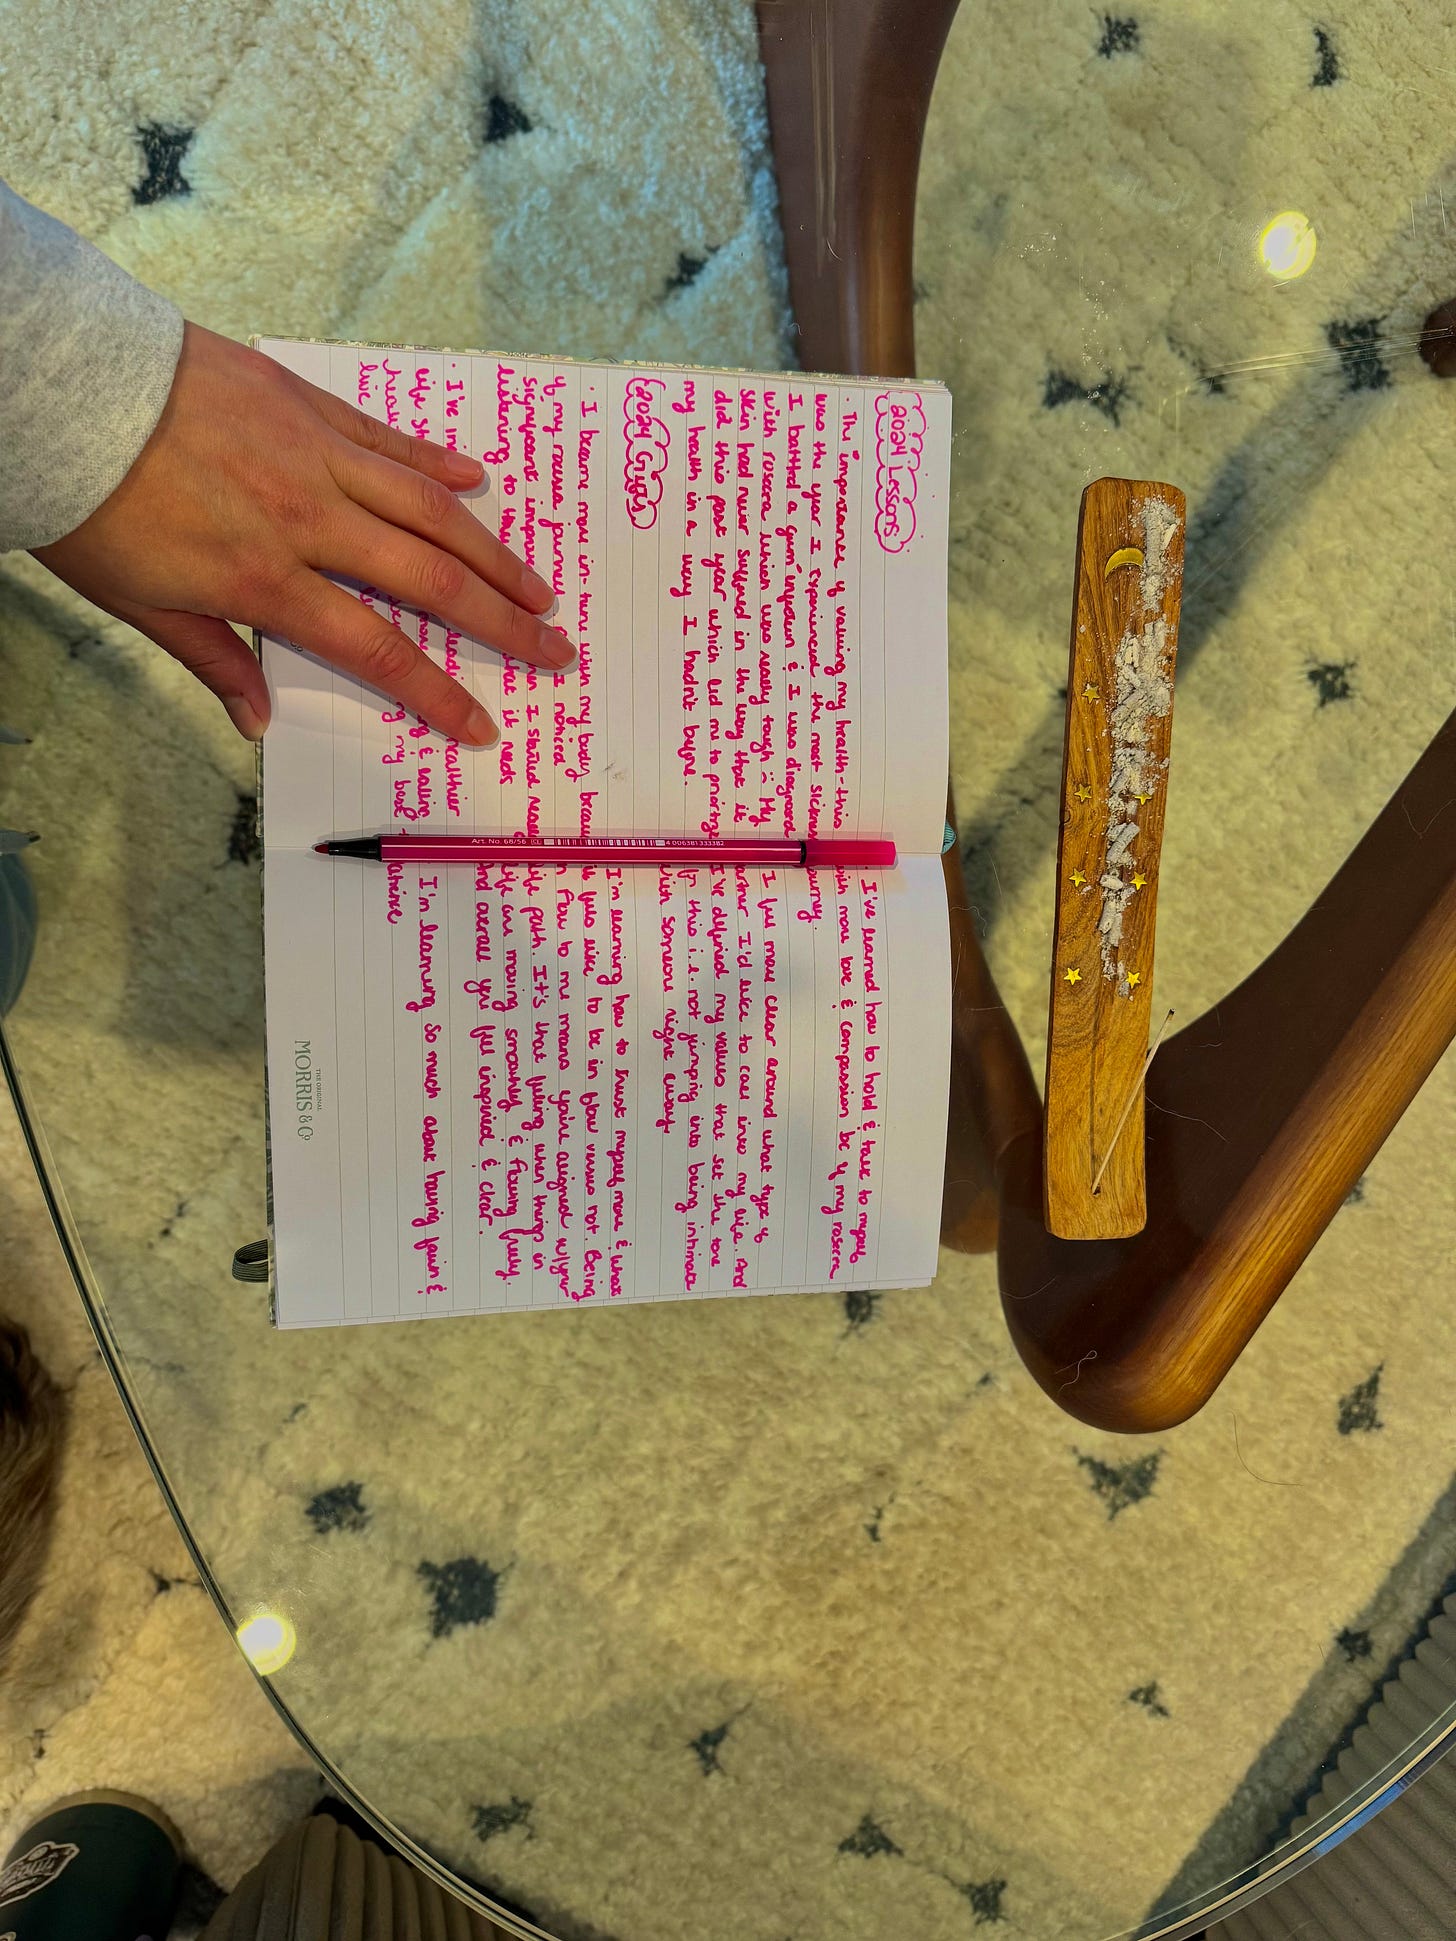 2024 Lessons
· The importance of valuing my health - this
was the year I experienced the most sickness
I battled a gum infection & I was diagnosed
with rosacea which was really tough - My
skin had never suffered in the way that it
did this past year which led me to prioritize
my health in a way I hadn't before.
2024 Growth
· I became more in-tune when my body
of my rosacea journey I noticed
significant when I started
listening to what it needs
· I've healthier
life & eating
my best
live
· I've learned how to hold & talk to myself
with more love & compassion bc of my rosacea
journey.
I feel more clear around what type of
partner I'd like to call into my life. And
I've defined my values that set the tone
for this i.e. not jumping into being intimate
with someone right away.
I'm learning how to trust myself more & what
it feels like to be in flow versus not. Being
in Flow to me means you're aligned w/ your
life path. It's that feeling when things in
life are moving smoothly & flowing freely.
And overall you feel inspired & clear.
· I'm learning so much about having fun &
THE ORIGINAL
MORRIS & Co
Art. No. 68/56
4 006381 333382